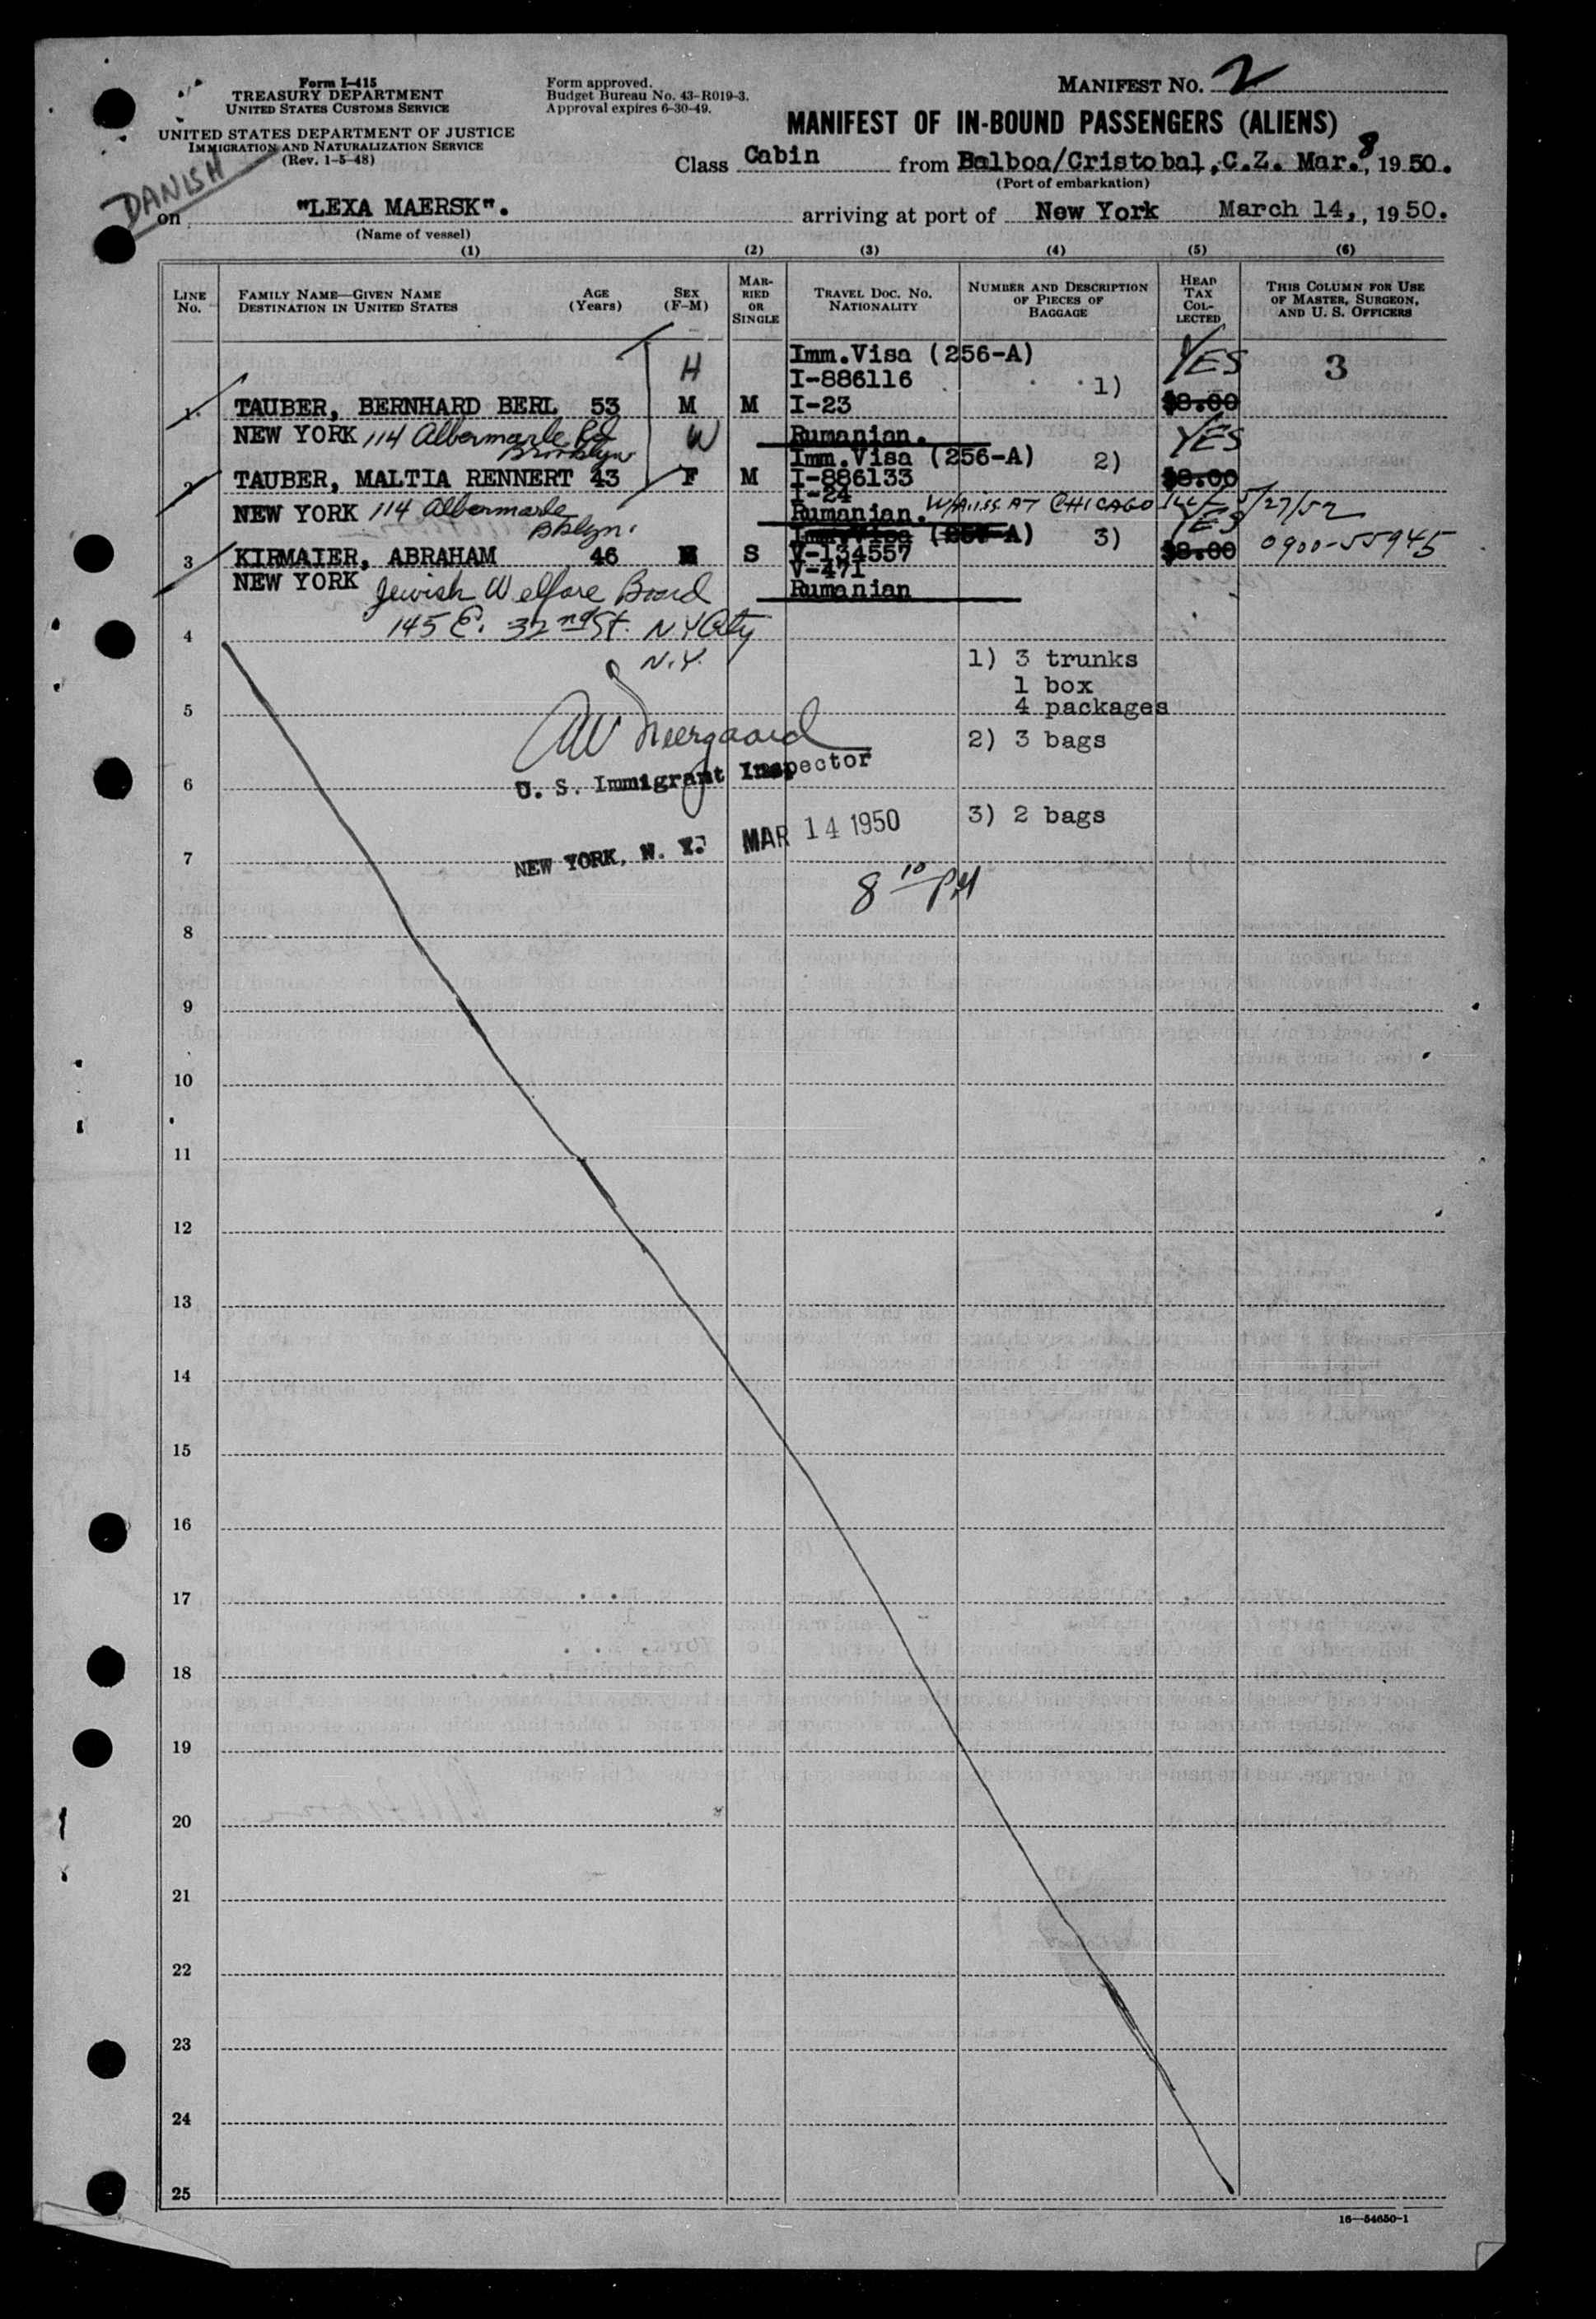 Form I-415
TREASURY DEPARTMENT
UNITED STATES CUSTOMS SERVICE
UNITED STATES DEPARTMENT OF JUSTICE
IMMIGRATION AND NATURALIZATION SERVICE
(Rev. 1-5-48)
Form approved.
Budget Bureau No. 43-R019-3.
Approval expires 6-30-49.
MANIFEST NO. 2
MANIFEST OF IN-BOUND PASSENGERS (ALIENS)
Class Cabin from Balboa/Cristobal, C.Z. Mar. 8, 1950.
(Port of embarkation)
DANISH
on "LEXA MAERSK". arriving at port of New York March 14, , 1950.
(Name of vessel)
(1) (2) (3) (4) (5) (6)
LINE NO.
FAMILY NAME—GIVEN NAME
DESTINATION IN UNITED STATES
AGE (Years)
SEX (F-M)
MARRIED OR SINGLE
TRAVEL DOC. NO.
NATIONALITY
NUMBER AND DESCRIPTION OF PIECES OF BAGGAGE
HEAD TAX COLLECTED
THIS COLUMN FOR USE OF MASTER, SURGEON, AND U. S. OFFICERS
H Imm.Visa (256-A) YES 3
I-886116 1)
1. TAUBER, BERNHARD BERL 53 M M I-23 $8.00
NEW YORK 114 Albermarle Rd Brooklyn W Rumanian. YES
Imm.Visa (256-A) 2)
2 TAUBER, MALTIA RENNERT 43 F M I-886133 $8.00
I-24
NEW YORK 114 Albermarle Bklyn. Rumanian. AT CHICAGO 5/27/52
Imm.Visa (257-A) 3) YES
3 KIRMAIER, ABRAHAM 46 M S V-134557 $8.00 0900-55945
V-471
NEW YORK Jewish Welfare Board Rumanian
145 E. 32nd St. N Y City
N.Y.
4
1) 3 trunks
1 box
4 packages
5
2) 3 bags
U. S. Immigrant Inspector
6
3) 2 bags
NEW YORK, N. Y. MAR 14 1950
7
8 10 PM
8
9
10
11
12
13
14
15
16
17
18
19
20
21
22
23
24
25
16—54650-1